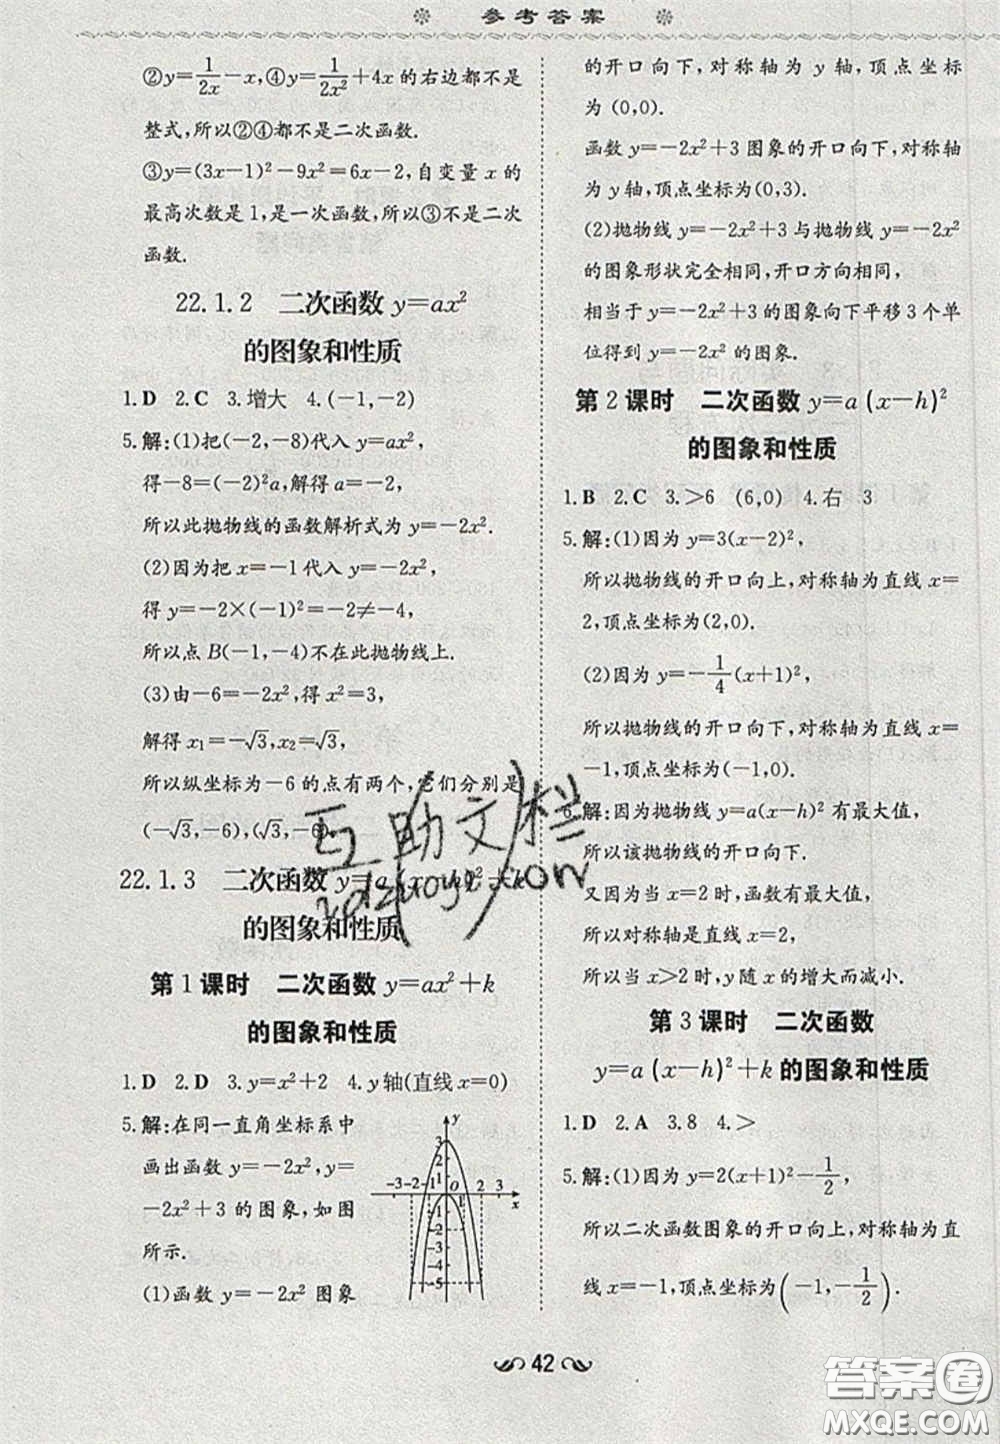 参考答案
②y=1/2x-x,④y=1/2x²+4x的右边都不是
整式,所以②④都不是二次函数.
③y=(3x-1)²-9x²=6x-1,自变量 x 的
最高次数是1,是一次函数,所以③不是二次
函数.
22.1.2 二次函数 y=ax²
的图象和性质
1.D 2.C 3.增大 4.(-1,-2)
5.解:(1)把(-2,-8)代入 y=ax²,
得-8=(-2)²a,解得a=-2,
所以此抛物线的函数解析式为 y=-2x².
(2)因为把 x=-1代入 y=-2x²,
得 y=-2×(-1)²=-2≠-4,
所以点 B(-1,-4)不在此抛物线上.
(3)由-6=-2x²,得 x²=3,
解得 x₁=-√3,x₂=√3,
所以纵坐标为-6的点有两个,它们分别是
(-√3,-6),(√3,-6).
22.1.3 二次函数 y=a(x-h)²+k
的图象和性质
第1课时 二次函数 y=ax²+k
的图象和性质
1.D 2.D 3.y=x²+2 4.y轴(直线x=0)
5.解:在同一直角坐标系中
画出函数 y=-2x²,y=
-2x²+3 的图象,如图
所示.
(1)函数 y=-2x² 图象
y
3
2
1
-3 -2 -1 O 1 2 3
x
-1
-2
-3
-4
-5
的开口向下,对称轴为 y 轴,顶点坐标
为 (0,0).
函数 y=-2x²+3图象的开口向下,对称轴
为 y轴,顶点坐标为(0,3).
(2)抛物线 y=-2x²+3与抛物线 y=-2x²
的图象形状完全相同,开口方向相同,
相当于 y=-2x²+3的图象向下平移3个单
位得到 y=-2x² 的图象.
第2课时 二次函数 y=a(x-h)²
的图象和性质
1.B 2.C 3.>6 (6,0) 4.右 3
5.解:(1)因为 y=3(x-2)²,
所以抛物线的开口向上,对称轴为直线 x=
2,顶点坐标为(2,0).
(2)因为 y=-1/4(x+1)²,
所以抛物线的开口向下,对称轴为直线 x=
-1,顶点坐标为(-1,0).
6.解:因为抛物线 y=a(x-h)² 有最大值,
所以该抛物线开口向下.
又因为当 x=2 时,函数有最大值,
所以对称轴是直线 x=2,
所以当 x>2时,y随 x的增大而减小.
第3课时 二次函数
y=a(x-h)²+k的图象和性质
1.D 2.A 3.8 4.>
5.解:(1)因为 y=2(x+1)²-1/2,
所以二次函数图象的开口向上,对称轴为直
线 x=-1,顶点坐标为(-1,-1/2).
42
互助文栏
答案圈
MXQE.COM